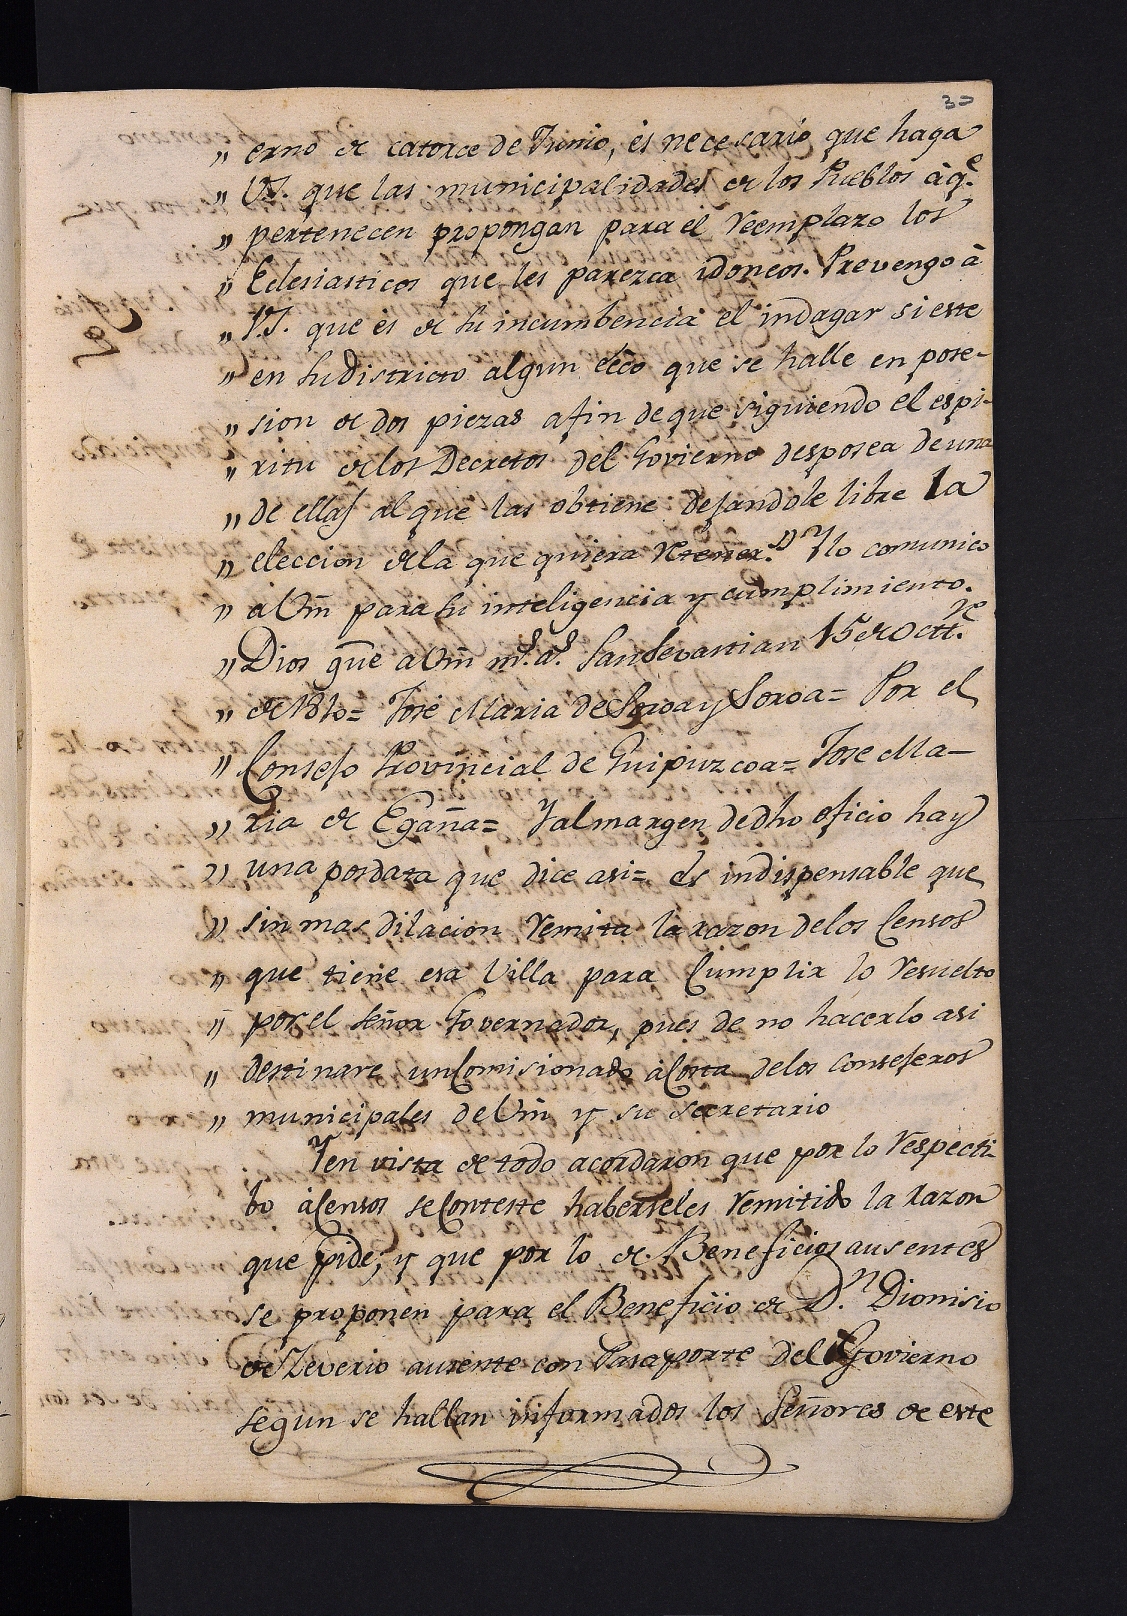 30
„ erno de catorce de Junio, es necesario que haga
„ V.S. que las municipalidades de los Pueblos à q.e
„ pertenecen propongan para el reemplazo los
„ Eclesiasticos que les parezca idoneos. Prevengo à
„ V.S. que es de su incumbencia el indagar si este
„ en su districto algun ecc̃o que se halle en pose-
„ sion de dos piezas afin de que siguiendo el espi-
„ ritu de los Decretos del Govierno desposea de una
„ de ellas al que las obtiene dejandole libre la
„ eleccion de la que quiera retener. Y lo comunico
„ a Vm̃ para su inteligencia y cumplimiento.
„ Dios gũe a Vm̃ m.s a.s San Sevastian 15 de Oct.re
„ de 1810= José Maria de Soroa y Soroa= Por el
„ Consejo Provincial de Guipuzcoa= Jose Ma-
„ ria de Egaña= Y al margen de dho oficio hay
„ una posdata que dice asi= és indispensable que
„ sin mas dilacion remita la razon de los Censos
„ que tiene esa Villa para Cumplir lo resuelto
„ por el señor Governador, pues de no hacerlo asi
„ destinare un Comisionado à Costa de los consejeros
„ municipales de Vm̃ y su secretario
Y en vista de todo acordaron que por lo respecti-
bo à Censos se Conteste haberseles remitido la razon
que pide; y que por lo de Beneficios ausentes
se proponen para el Beneficio de D.n Dionisio
de Zeverio ausente con Pasaporte del Govierno
segun se hallan informados los Señores de este